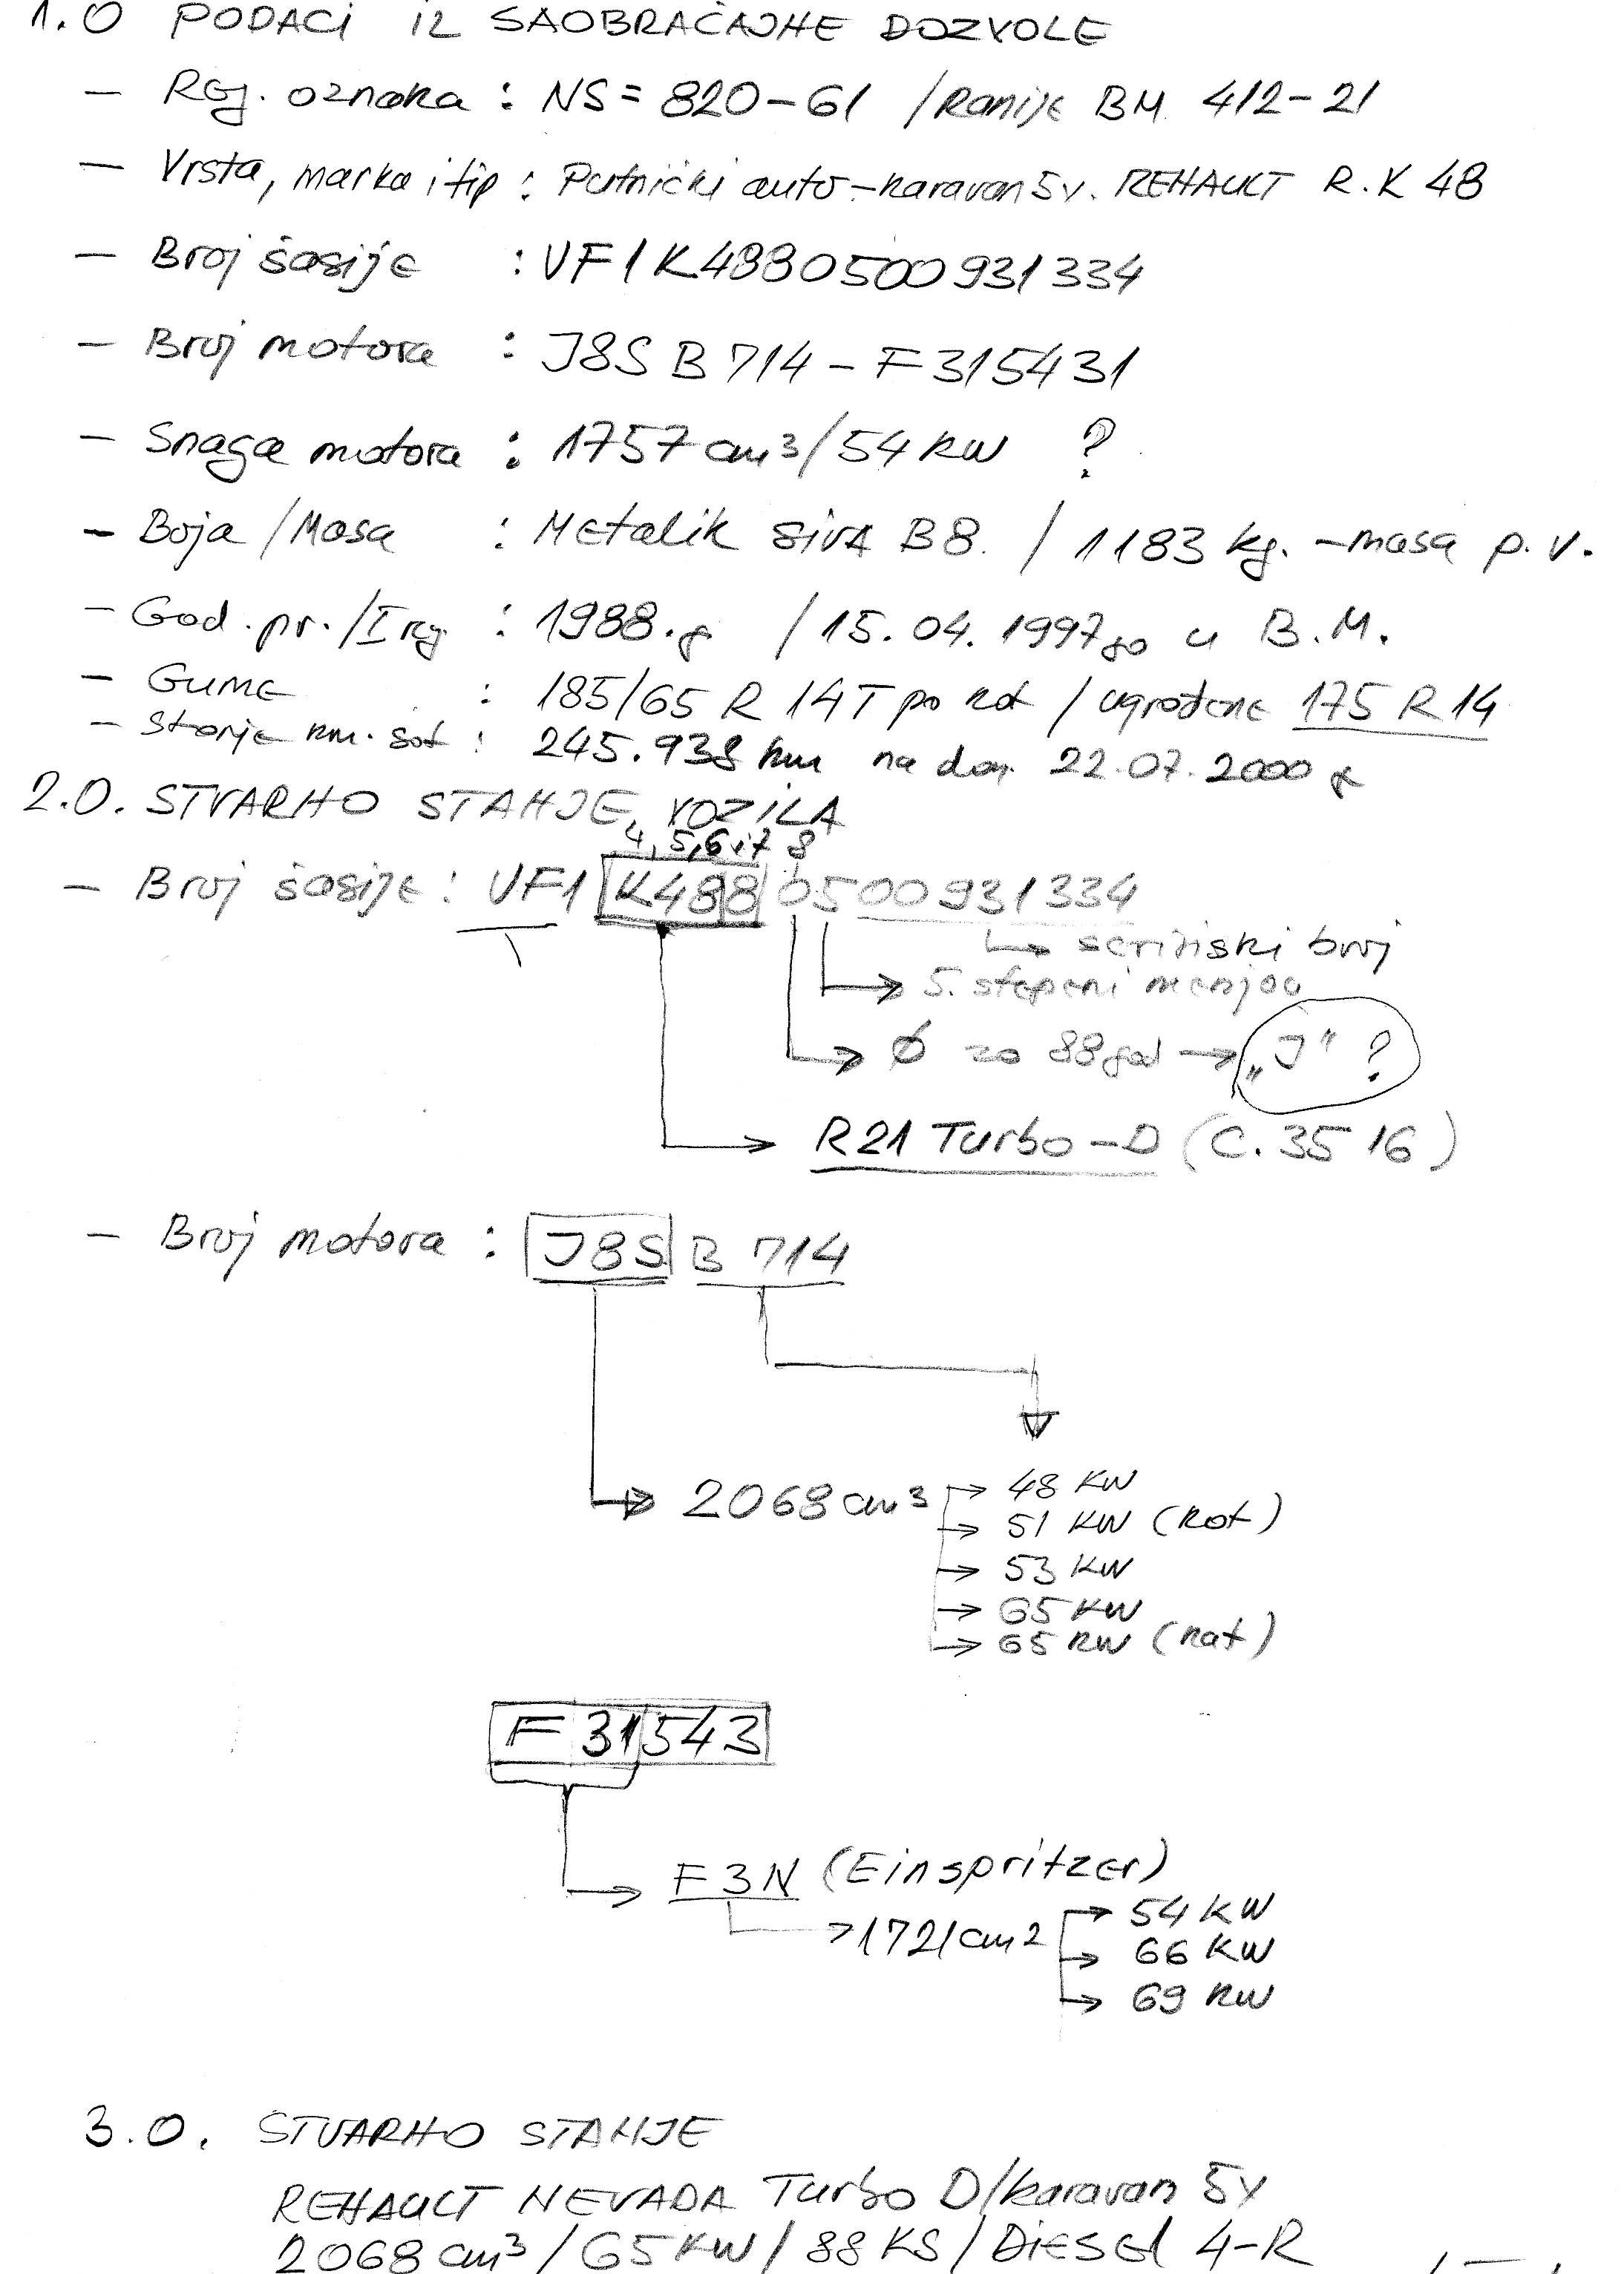 1.0 PODACI IZ SAOBRAĆAJNE DOZVOLE
- Reg. oznaka : NS = 820-61 /Ranije BM 412-21
- Vrsta, marka i tip : Putnički auto-karavan 5v. RENAULT R.K 48
- Broj šasije : VF1K4880500931334
- Broj motora : J8S B 714 - F315431
- Snaga motora : 1757 cm³/54 KW ?
- Boja /Masa : Metalik siva B8. / 1183 kg. - masa p.v.
- God. pr./I reg. : 1988.g / 15.04.1997 go u B.M.
- Gume : 185/65 R 14T po kat / ugrađene 175 R 14
- Stanje km. sat : 245.938 km na dan 22.07.2000 g
2.0. STVARNO STANJE VOZILA
4, 5, 6 i 7 8
- Broj šasije : VF1 K488 0500931334
→ serijski broj
→ 5. stepeni menjač
→ Ø za 88 god → „J" ?
→ R21 Turbo-D (C. 35 16)
- Broj motora : J8S B 714
→ 2068 cm³ → 48 KW
→ 51 KW (Kat)
→ 53 KW
→ 65 KW
→ 65 KW (Kat)
F 31543
→ F3N (Einspritzer)
→ 1721 cm2 → 54 KW
→ 66 KW
→ 69 KW
3.0. STVARNO STANJE
RENAULT NEVADA Turbo D/karavan 5v
2068 cm³ / 65 KW / 88 KS / DiESEl 4-R